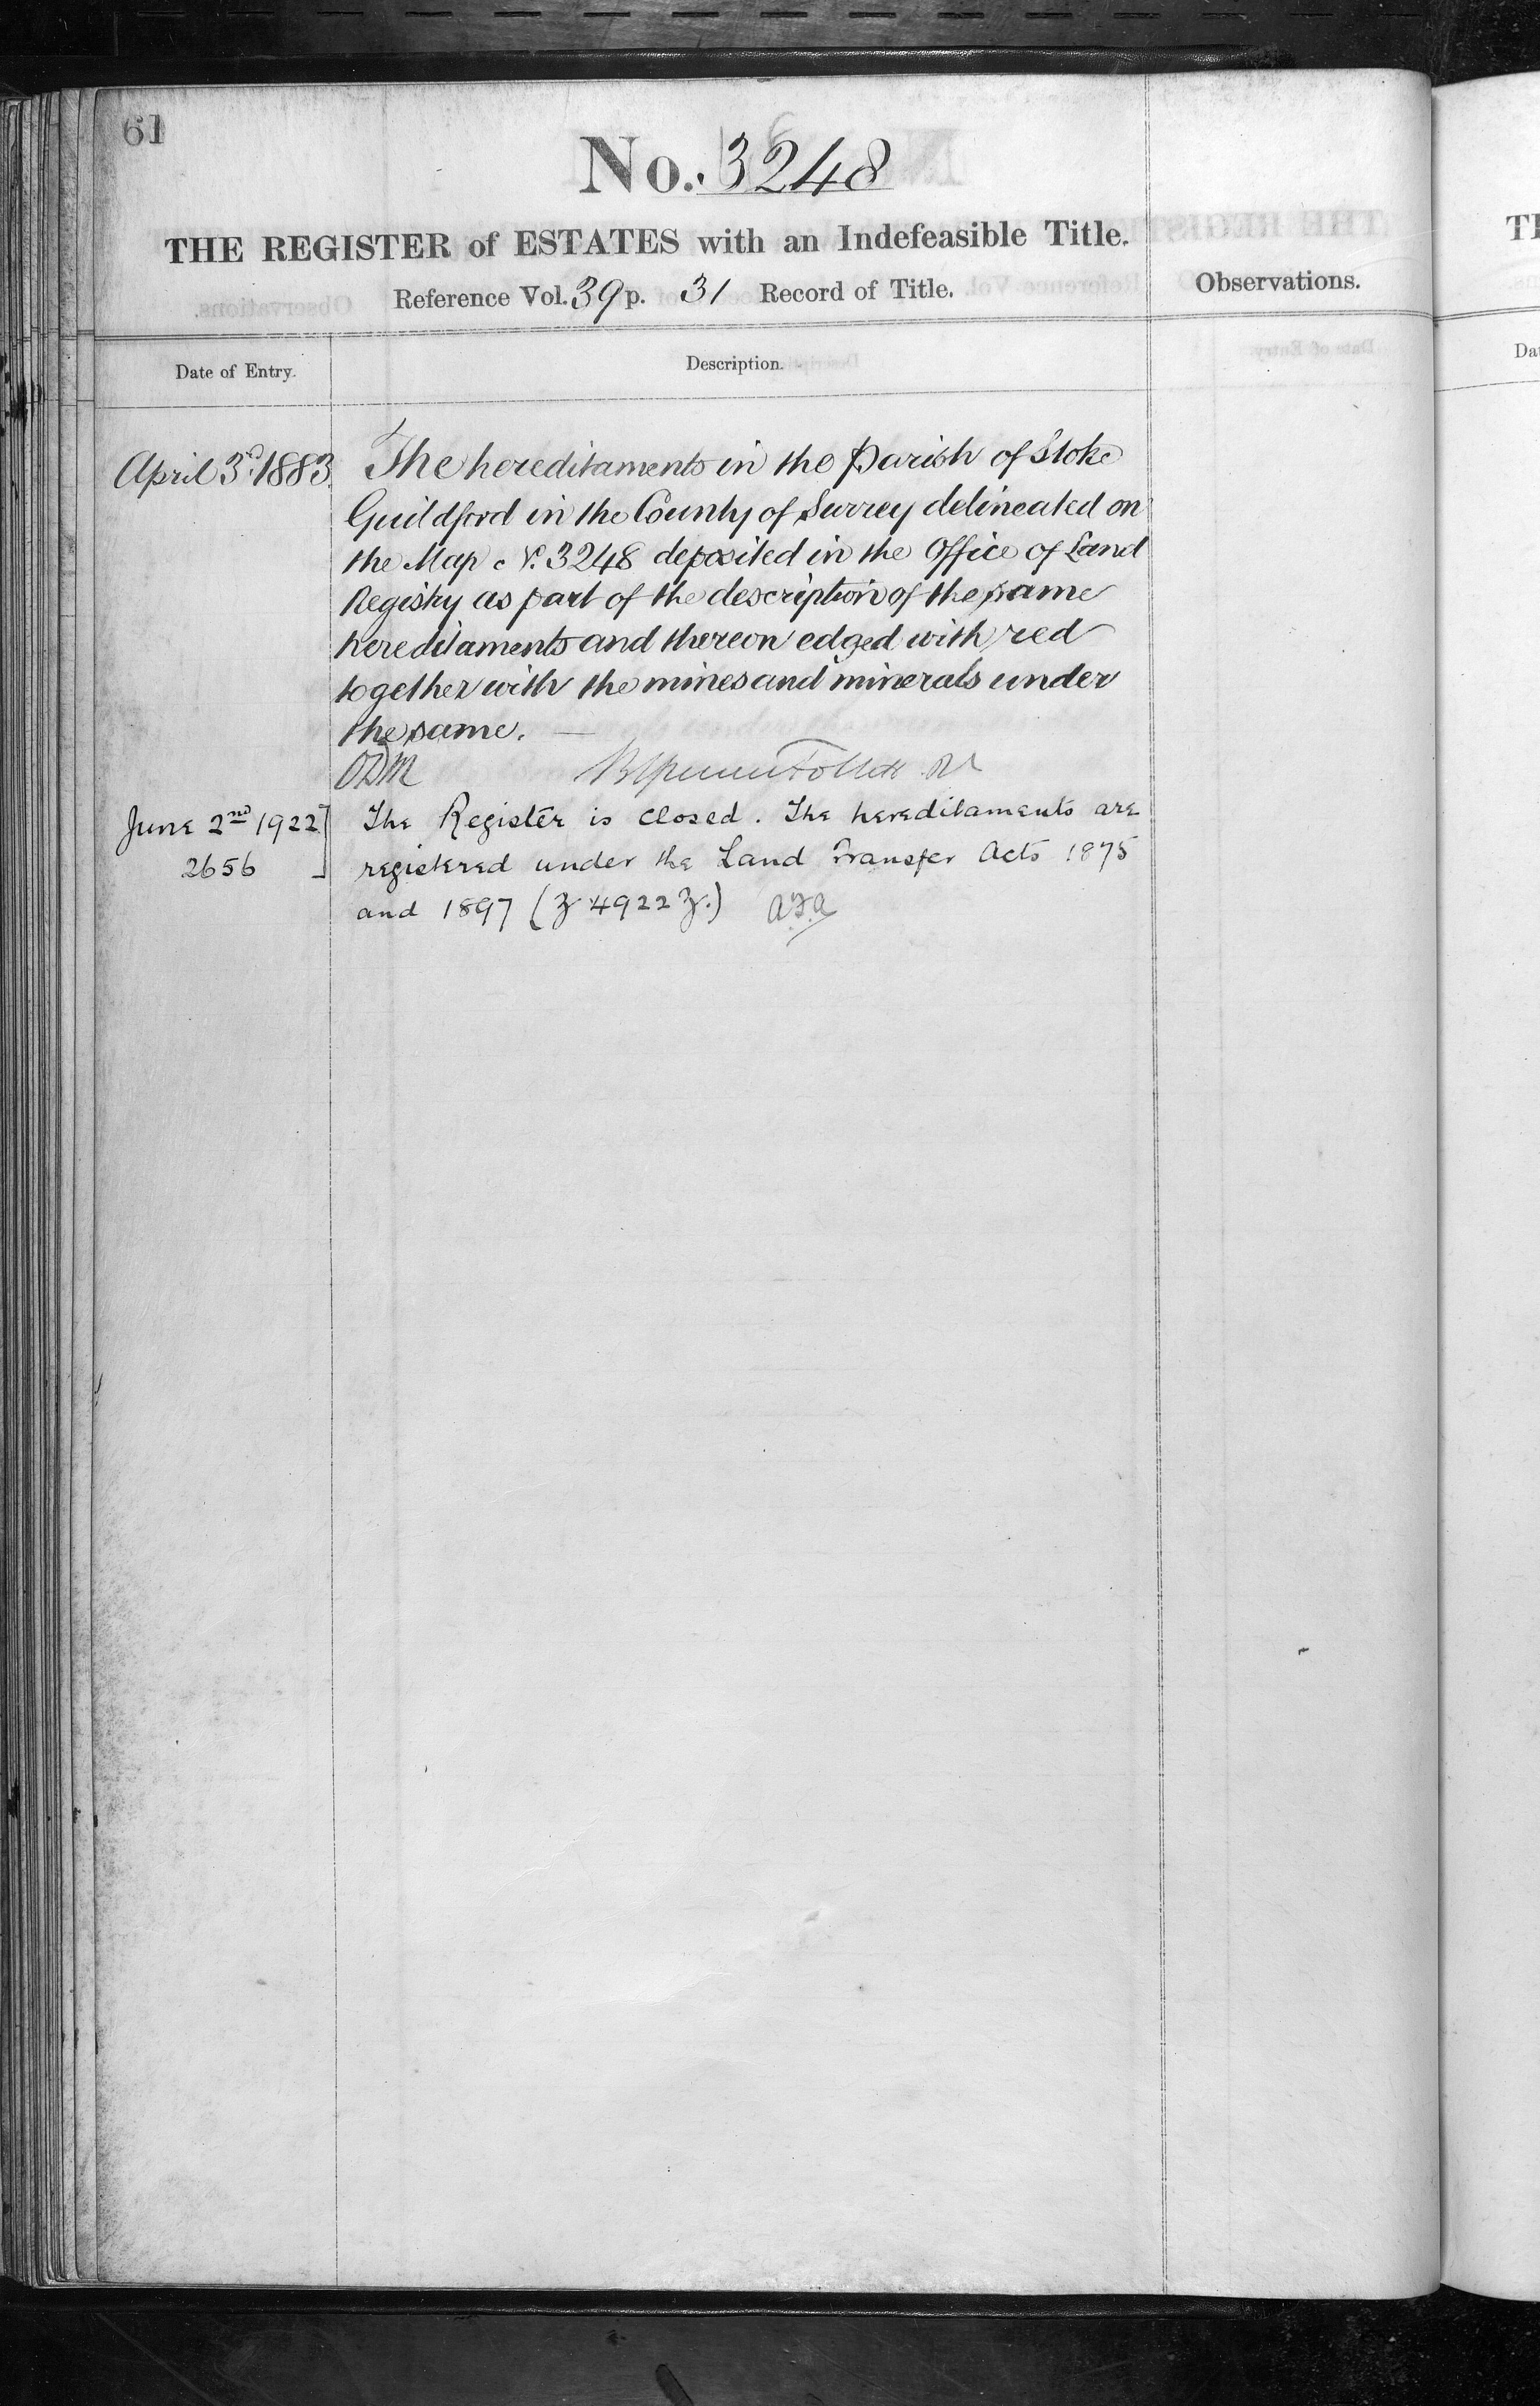 61
No. 3248
THE REGISTER of ESTATES with an Indefeasible Title.
Reference Vol. 39 p. 31 Record of Title.
Observations.
Date of Entry.
Description.
April 3d. 1883.
The hereditaments in the Parish of Stoke
Guildford in the County of Surrey delineated on
the Map No. 3248 deposited in the Office of Land
Registry as part of the description of the same
hereditaments and thereon edged with red
together with the mines and minerals under
the same.
ODM
June 2nd 1922
2656
The Register is closed. The hereditaments are
registered under the Land Transfer Acts 1875
and 1897 (Z 4922 Z.)